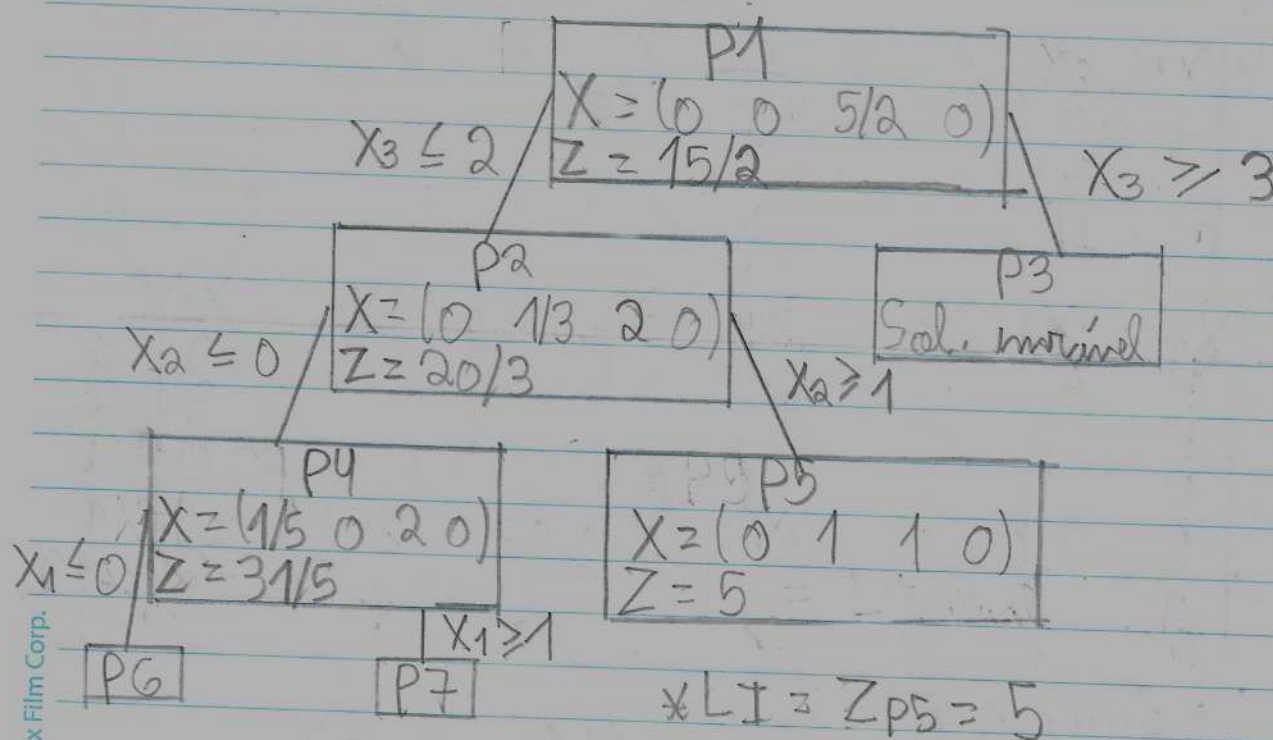 P1
X = (0 0 5/2 0)
Z = 15/2
X3 ≤ 2
X3 ≥ 3
P2
X = (0 1/3 2 0)
Z = 20/3
P3
Sol. inviável
X2 ≤ 0
X2 ≥ 1
P4
X = (1/5 0 2 0)
Z = 31/5
P5
X = (0 1 1 0)
Z = 5
X1 ≤ 0
X1 ≥ 1
P6
P7
*LI = ZP5 = 5
x Film Corp.